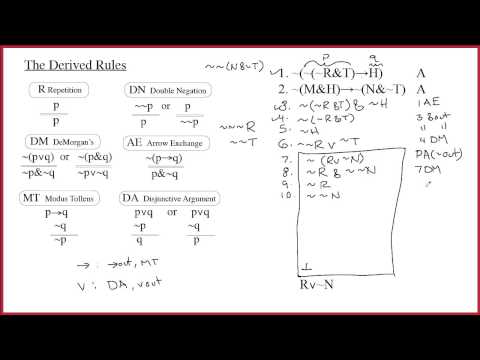 The Derived Rules
R Repetition
p
p
DN Double Negation
~~p or p
p ~~p
DM DeMorgan's
~(pvq) or ~(p&q)
~p&~q ~pv~q
AE Arrow Exchange
~(p→q)
p&~q
MT Modus Tollens
p→q
~q
~p
DA Disjunctive Argument
pvq or pvq
~p ~q
q p
→ : →out, MT
V : DA, vout
~~(N&~T)
~~~R
~~T
p q
1. ~(~(~R&T)→H) A
2. ~(M&H)→(N&~T) A
3. ~(~R&T) & ~H 1 AE
4. ~(~R&T) 3 &out
5. ~H " "
6. ~~R v ~T 4 DM
7. ~(Rv~N) PA(~out)
8. ~R & ~~N 7DM
9. ~R
10. ~~N
⊥
Rv~N